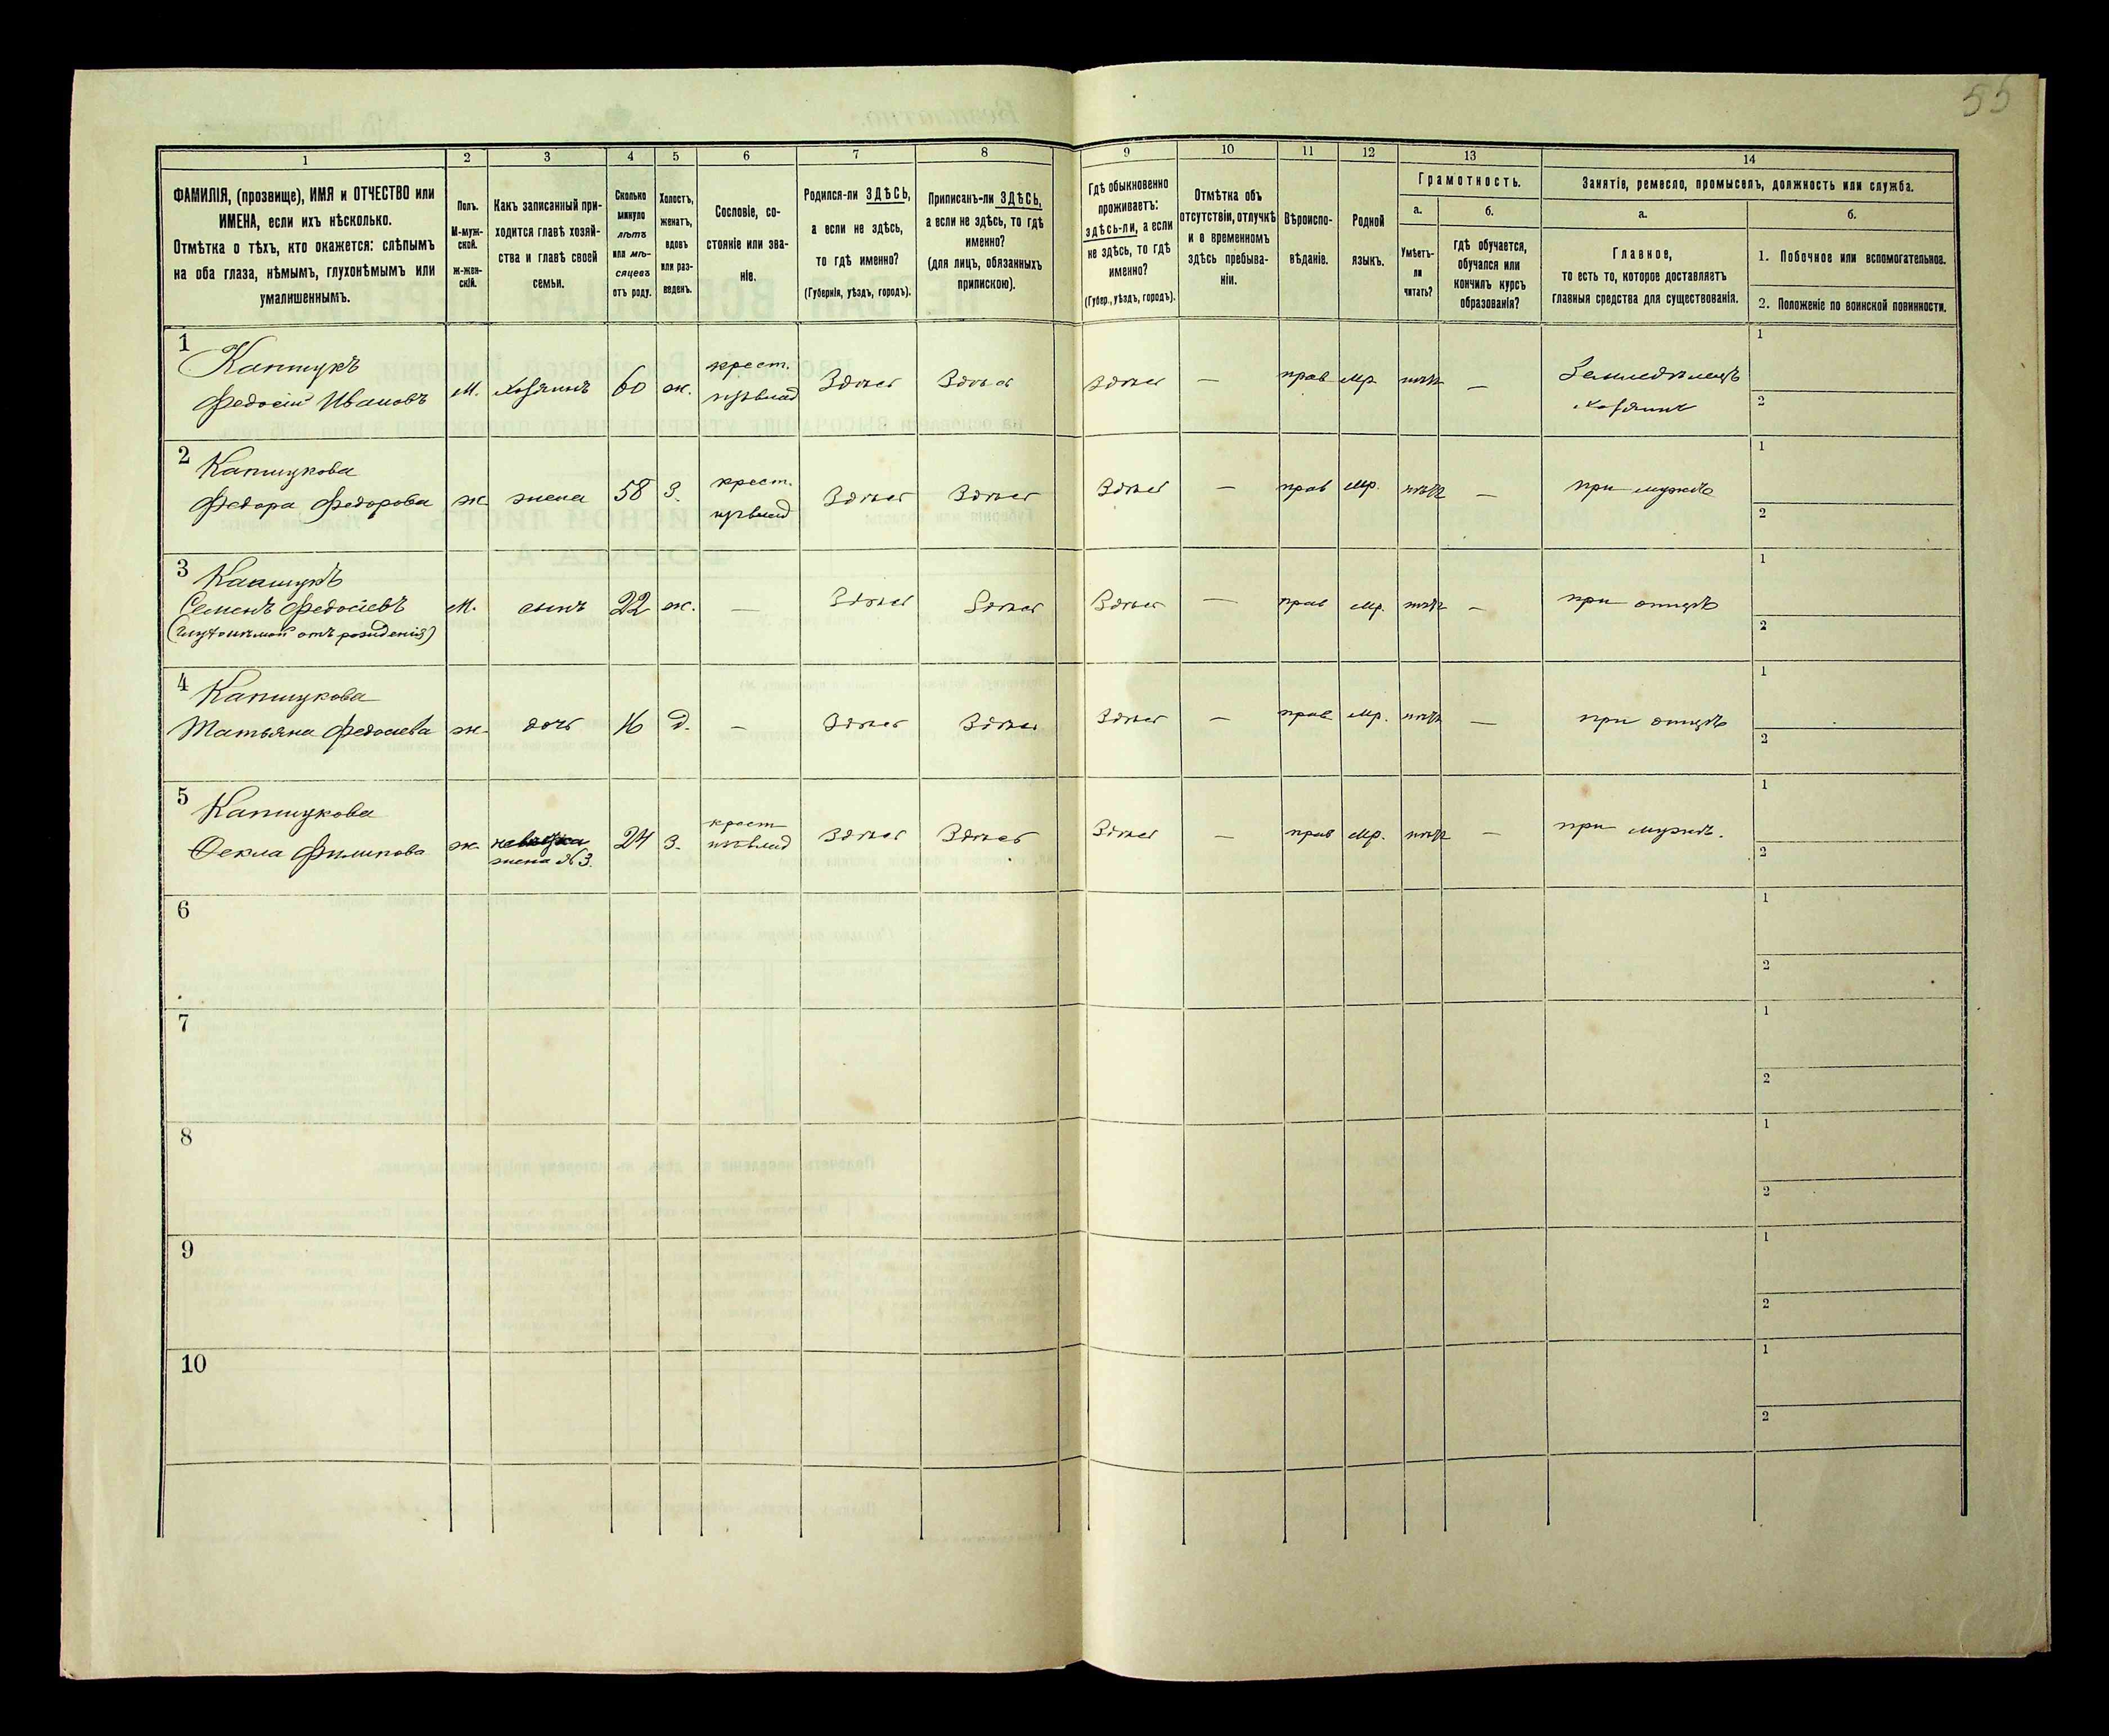 55
1 2 3 4 5 6 7 8 9 10 11 12 13 14
ФАМИЛІЯ, (прозвище), ИМЯ и ОТЧЕСТВО или
ИМЕНА, если ихъ нѣсколько.
Отмѣтка о тѣхъ, кто окажется: слѣпымъ
на оба глаза, нѣмымъ, глухонѣмымъ или
умалишеннымъ.
Полъ.
М-муж-
ской.
ж-жен-
скій.
Какъ записанный при-
ходится главѣ хозяй-
ства и главѣ своей
семьи.
Сколько
минуло
лѣтъ
или мѣ-
сяцевъ
отъ роду.
Холостъ,
женатъ,
вдовъ
или раз-
веденъ.
Сословіе, со-
стояніе или зва-
ніе.
Родился-ли ЗДѢСЬ,
а если не здѣсь,
то гдѣ именно?
(Губернія, уѣздъ, городъ).
Приписанъ-ли ЗДѢСЬ,
а если не здѣсь, то гдѣ
именно?
(для лицъ, обязанныхъ
припискою).
Гдѣ обыкновенно
проживаетъ:
здѣсь-ли, а если
не здѣсь, то гдѣ
именно?
(Губер., уѣздъ, городъ).
Отмѣтка объ
отсутствіи, отлучкѣ
и о временномъ
здѣсь пребыва-
ніи.
Вѣроиспо-
вѣданіе.
Родной
языкъ.
Грамотность.
а.
Умѣетъ-
ли
читать?
б.
гдѣ обучается,
обучался или
кончилъ курсъ
образованія?
Занятіе, ремесло, промыселъ, должность или служба.
а.
Главное,
то есть то, которое доставляетъ
главныя средства для существованія.
б.
1. Побочное или вспомогательное.
2. Положеніе по воинской повинности.
1
Капшукъ
Федосій Ивановъ
м. хозяинъ 60 ж.
крест.
Здѣсь Здѣсь Здѣсь — прав мр. нѣтъ —
Земледѣлецъ
хозяинъ
1
2
2
Капшукова
Федора Федорова
ж жена 58 З.
крест.
Здѣсь Здѣсь Здѣсь — прав мр. нѣтъ —
при мужѣ
1
2
3
Капшукъ
Семенъ Федосіевъ
(глухонѣмой отъ рожденія)
м. сынъ 22 ж. — Здѣсь Здѣсь Здѣсь — прав мр. нѣтъ —
при отцѣ
1
2
4
Капшукова
Татьяна Федосіева
ж. дочь 16 д. — Здѣсь Здѣсь Здѣсь — прав мр. нѣтъ —
при отцѣ
1
2
5
Капшукова
Фекла Филипова
ж. невѣстка
жена №3.
24 З.
крест
Здѣсь Здѣсь Здѣсь — прав мр. нѣтъ —
при мужѣ.
1
2
6
1
2
7
1
2
8
1
2
9
1
2
10
1
2